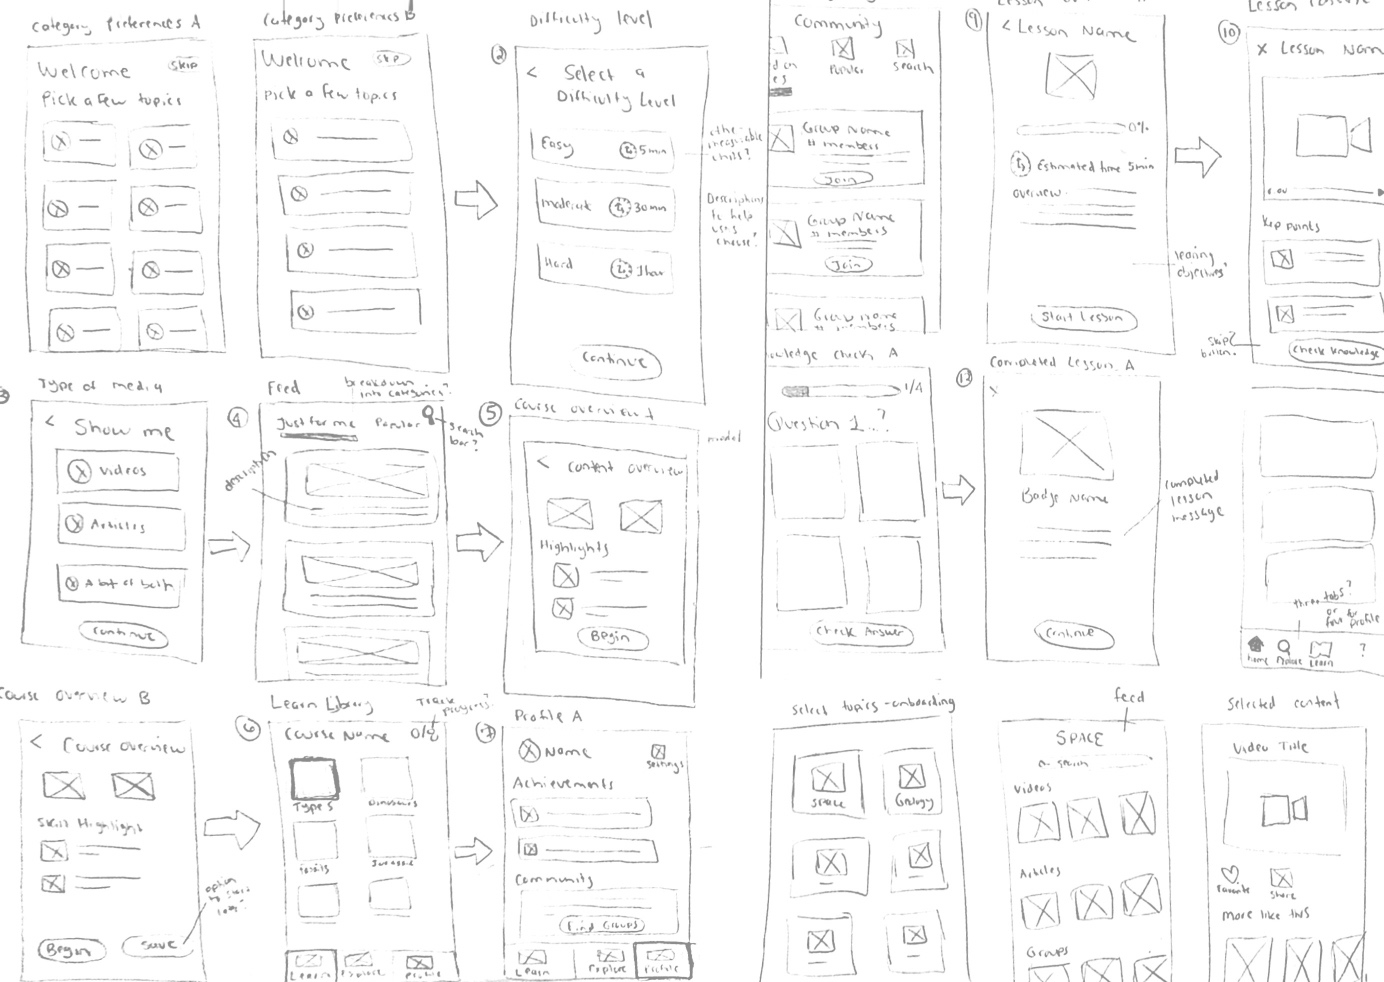 Category preferences A
Welcome
Skip
Pick a few topics
Category preferences B
Welcome
Skip
Pick a few topics
Difficulty level
2
< Select a
Difficulty Level
Easy
5min
moderate
30min
Hard
1hour
Continue
other
measurable
units?
Descriptions
to help
users
choose?
Community
Popular
Search
Group Name
# members
Join
Group Name
# members
Join
Group name
# members
9
< Lesson Name
0%
Estimated time 5min
overview
Start Lesson
learning
objectives?
10
X Lesson Name
Key points
Skip
button?
Check knowledge
3
Type of media
< Show me
Videos
Articles
A bit of both
Continue
4
Feed
breakdown
into categories?
Just for me
Popular
Search
bar?
description
5
Course overview
< Content overview
Highlights
Begin
model
Knowledge check A
1/4
Question 1..?
Check Answer
12
Completed Lesson A
X
Badge Name
Continue
completed
lesson
message
three tabs?
or
four for
profile
Home
Explore
Learn
?
Course overview B
< Course overview
Skill Highlight
Begin
Save
option
6
Learn Library
Track
progress?
Course Name
Types
Dinosaurs
Fossils
Jurassic
Learn
Explore
Profile
7
Profile A
Name
Settings
Achievements
Community
Find Groups
Learn
Explore
Profile
Select topics - onboarding
SPACE
Geology
feed
SPACE
search
Videos
Articles
Groups
Selected content
Video Title
Favorite
Share
More like this